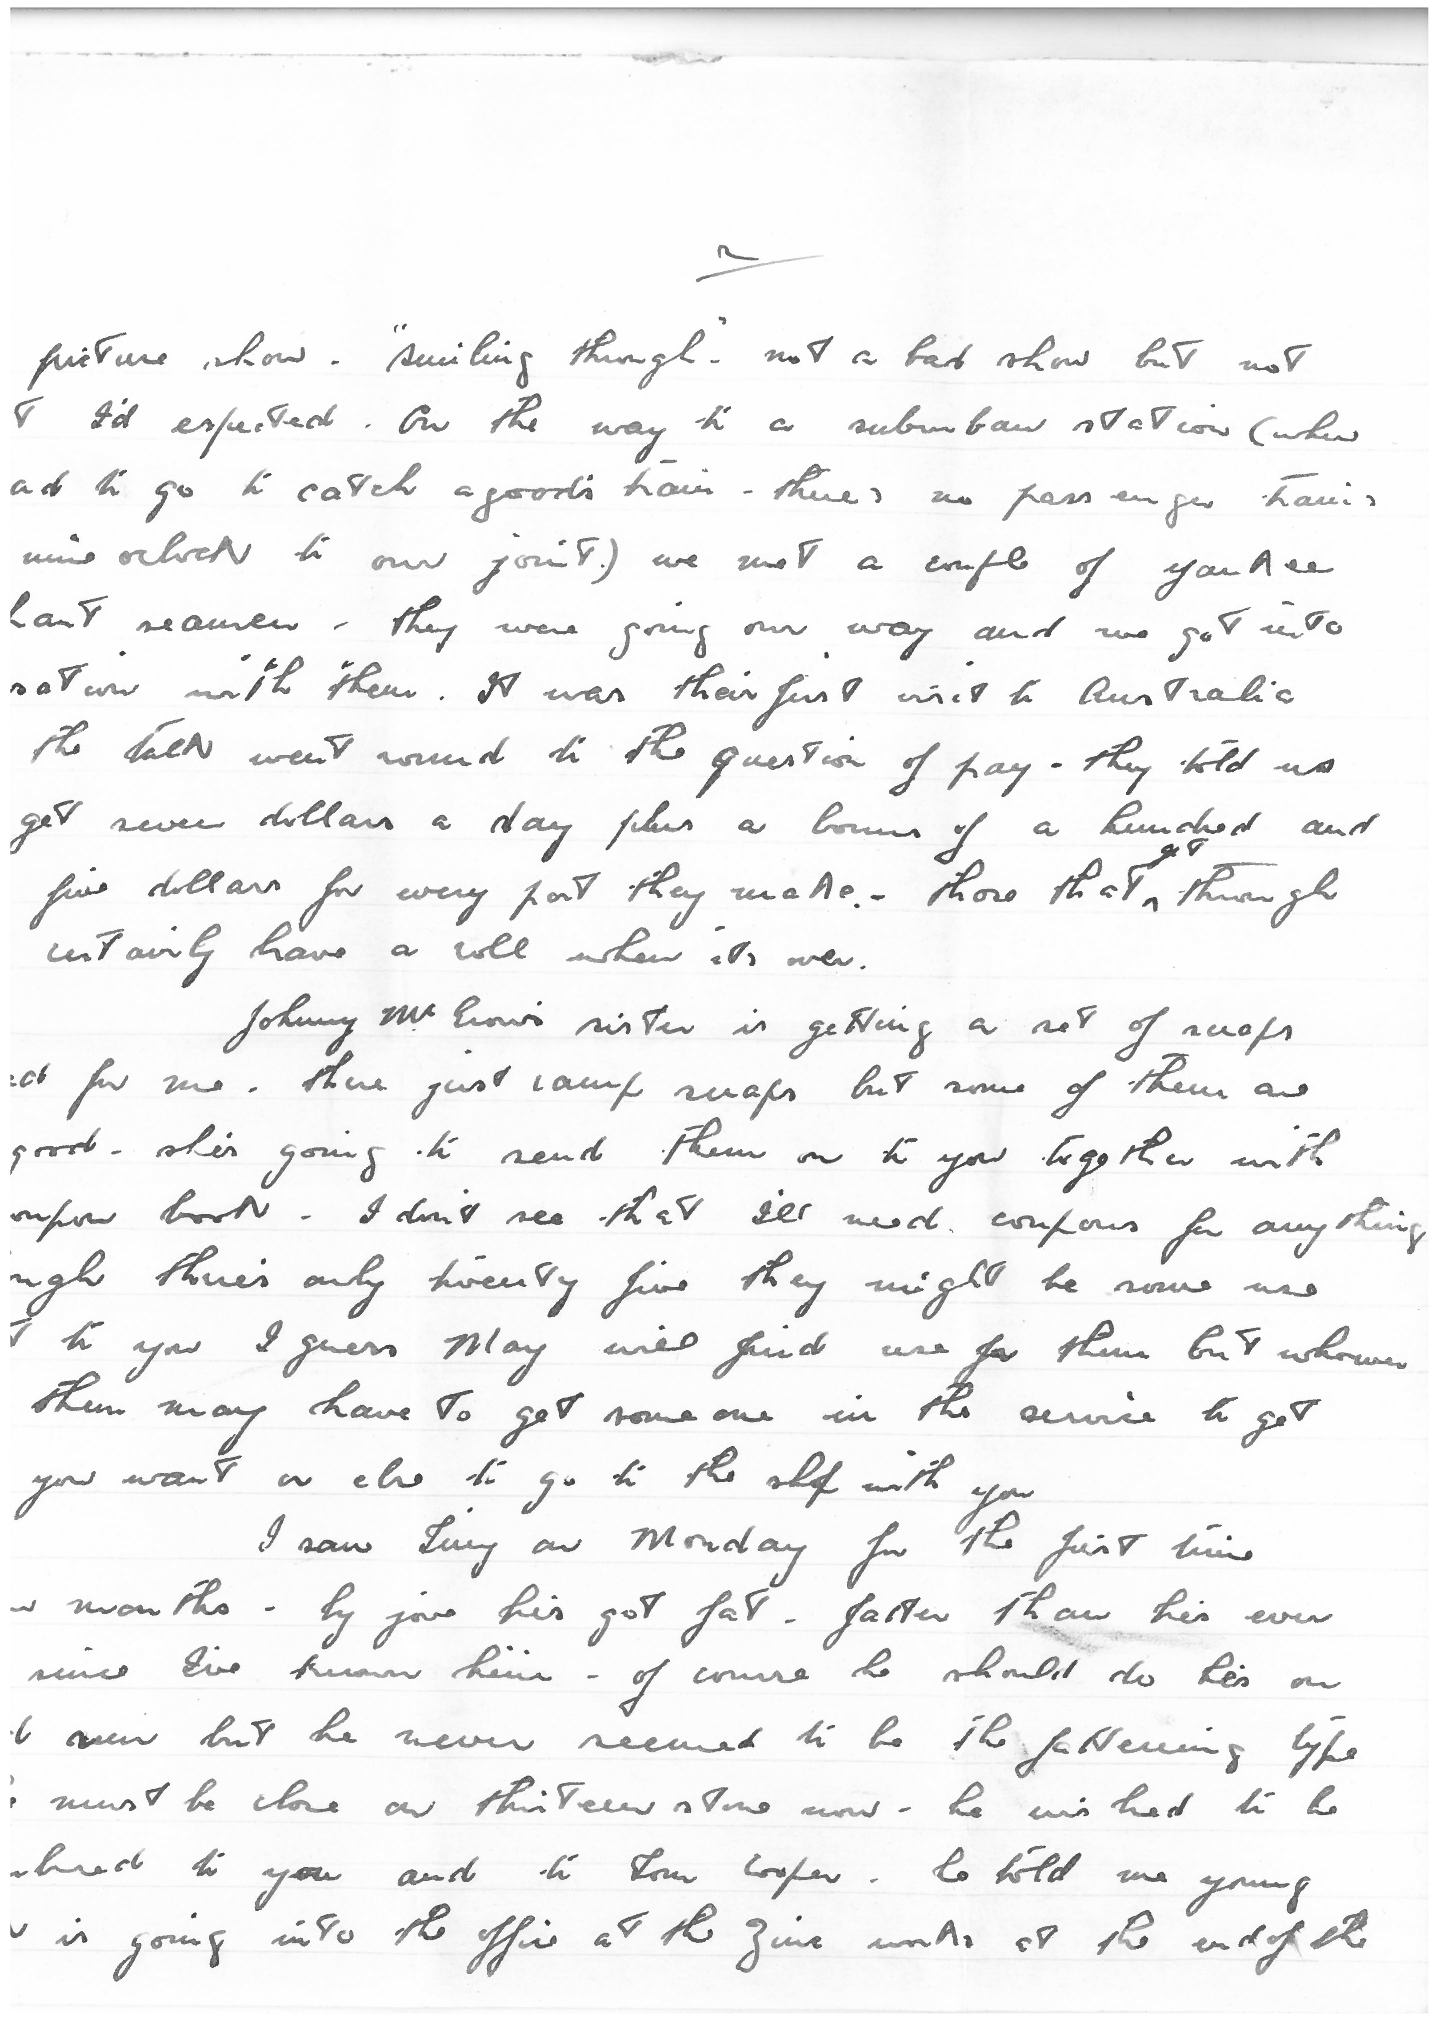 2
picture show - "Smiling through" - not a bad show but not
t I'd expected. On the way to a suburban station (when
ad to go to catch a goods train - there's no passenger trains
nine oclock to our joint.) we met a couple of yankee
hant seamen - they were going our way and we got into
sation with them. It was their first visit to Australia
the talk went round to the question of pay - they told us
get seven dollars a day plus a bonus of a hundred and
five dollars for every port they make. - those that get through
certainly have a roll when its over.
Johnny Mc sister is getting a set of snaps
ed for me. there just camp snaps but some of them are
good - she's going to send them on to you together with
oupon book - I don't see that I'll need coupons for anything
ugh there's only twenty five they might be some use
t to you I guess May will find use for them but whoever
them may have to get some one in the service to get
you want or else to go to the shop with you
I saw on Monday for the first time
w months - by jove he's got fat - fatter than he's ever
since I've known him - of course he should do he's on
run but he never seemed to be the fattening type
e must be close on thirteen stone now - he wished to be
mbered to you and to Tom Cooper. he told me young
is going into the office at the Zinc works at the end of the